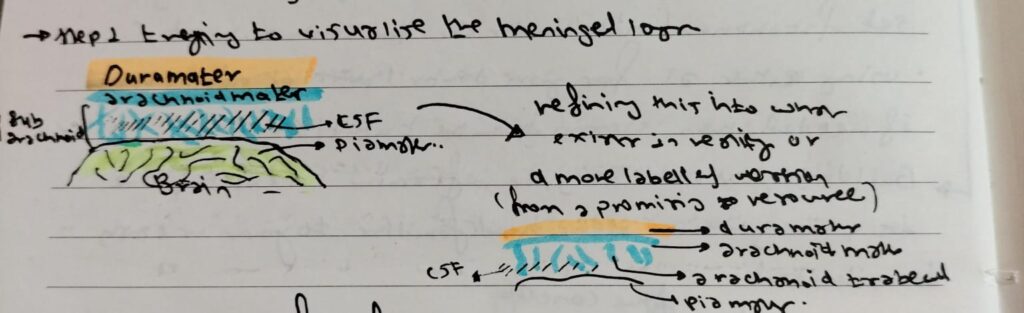 → step 1 trying to visualise the meningel layer
Duramater
arachnoidmater
sub
arachnoid
→ CSF
→ piamater..
Brain
refining this into what
exists in reality or
a more labelled version
(from a promising resource)
→ duramater
→ arachnoid mater
CSF
→ arachonoid trabecul
→ piamater.